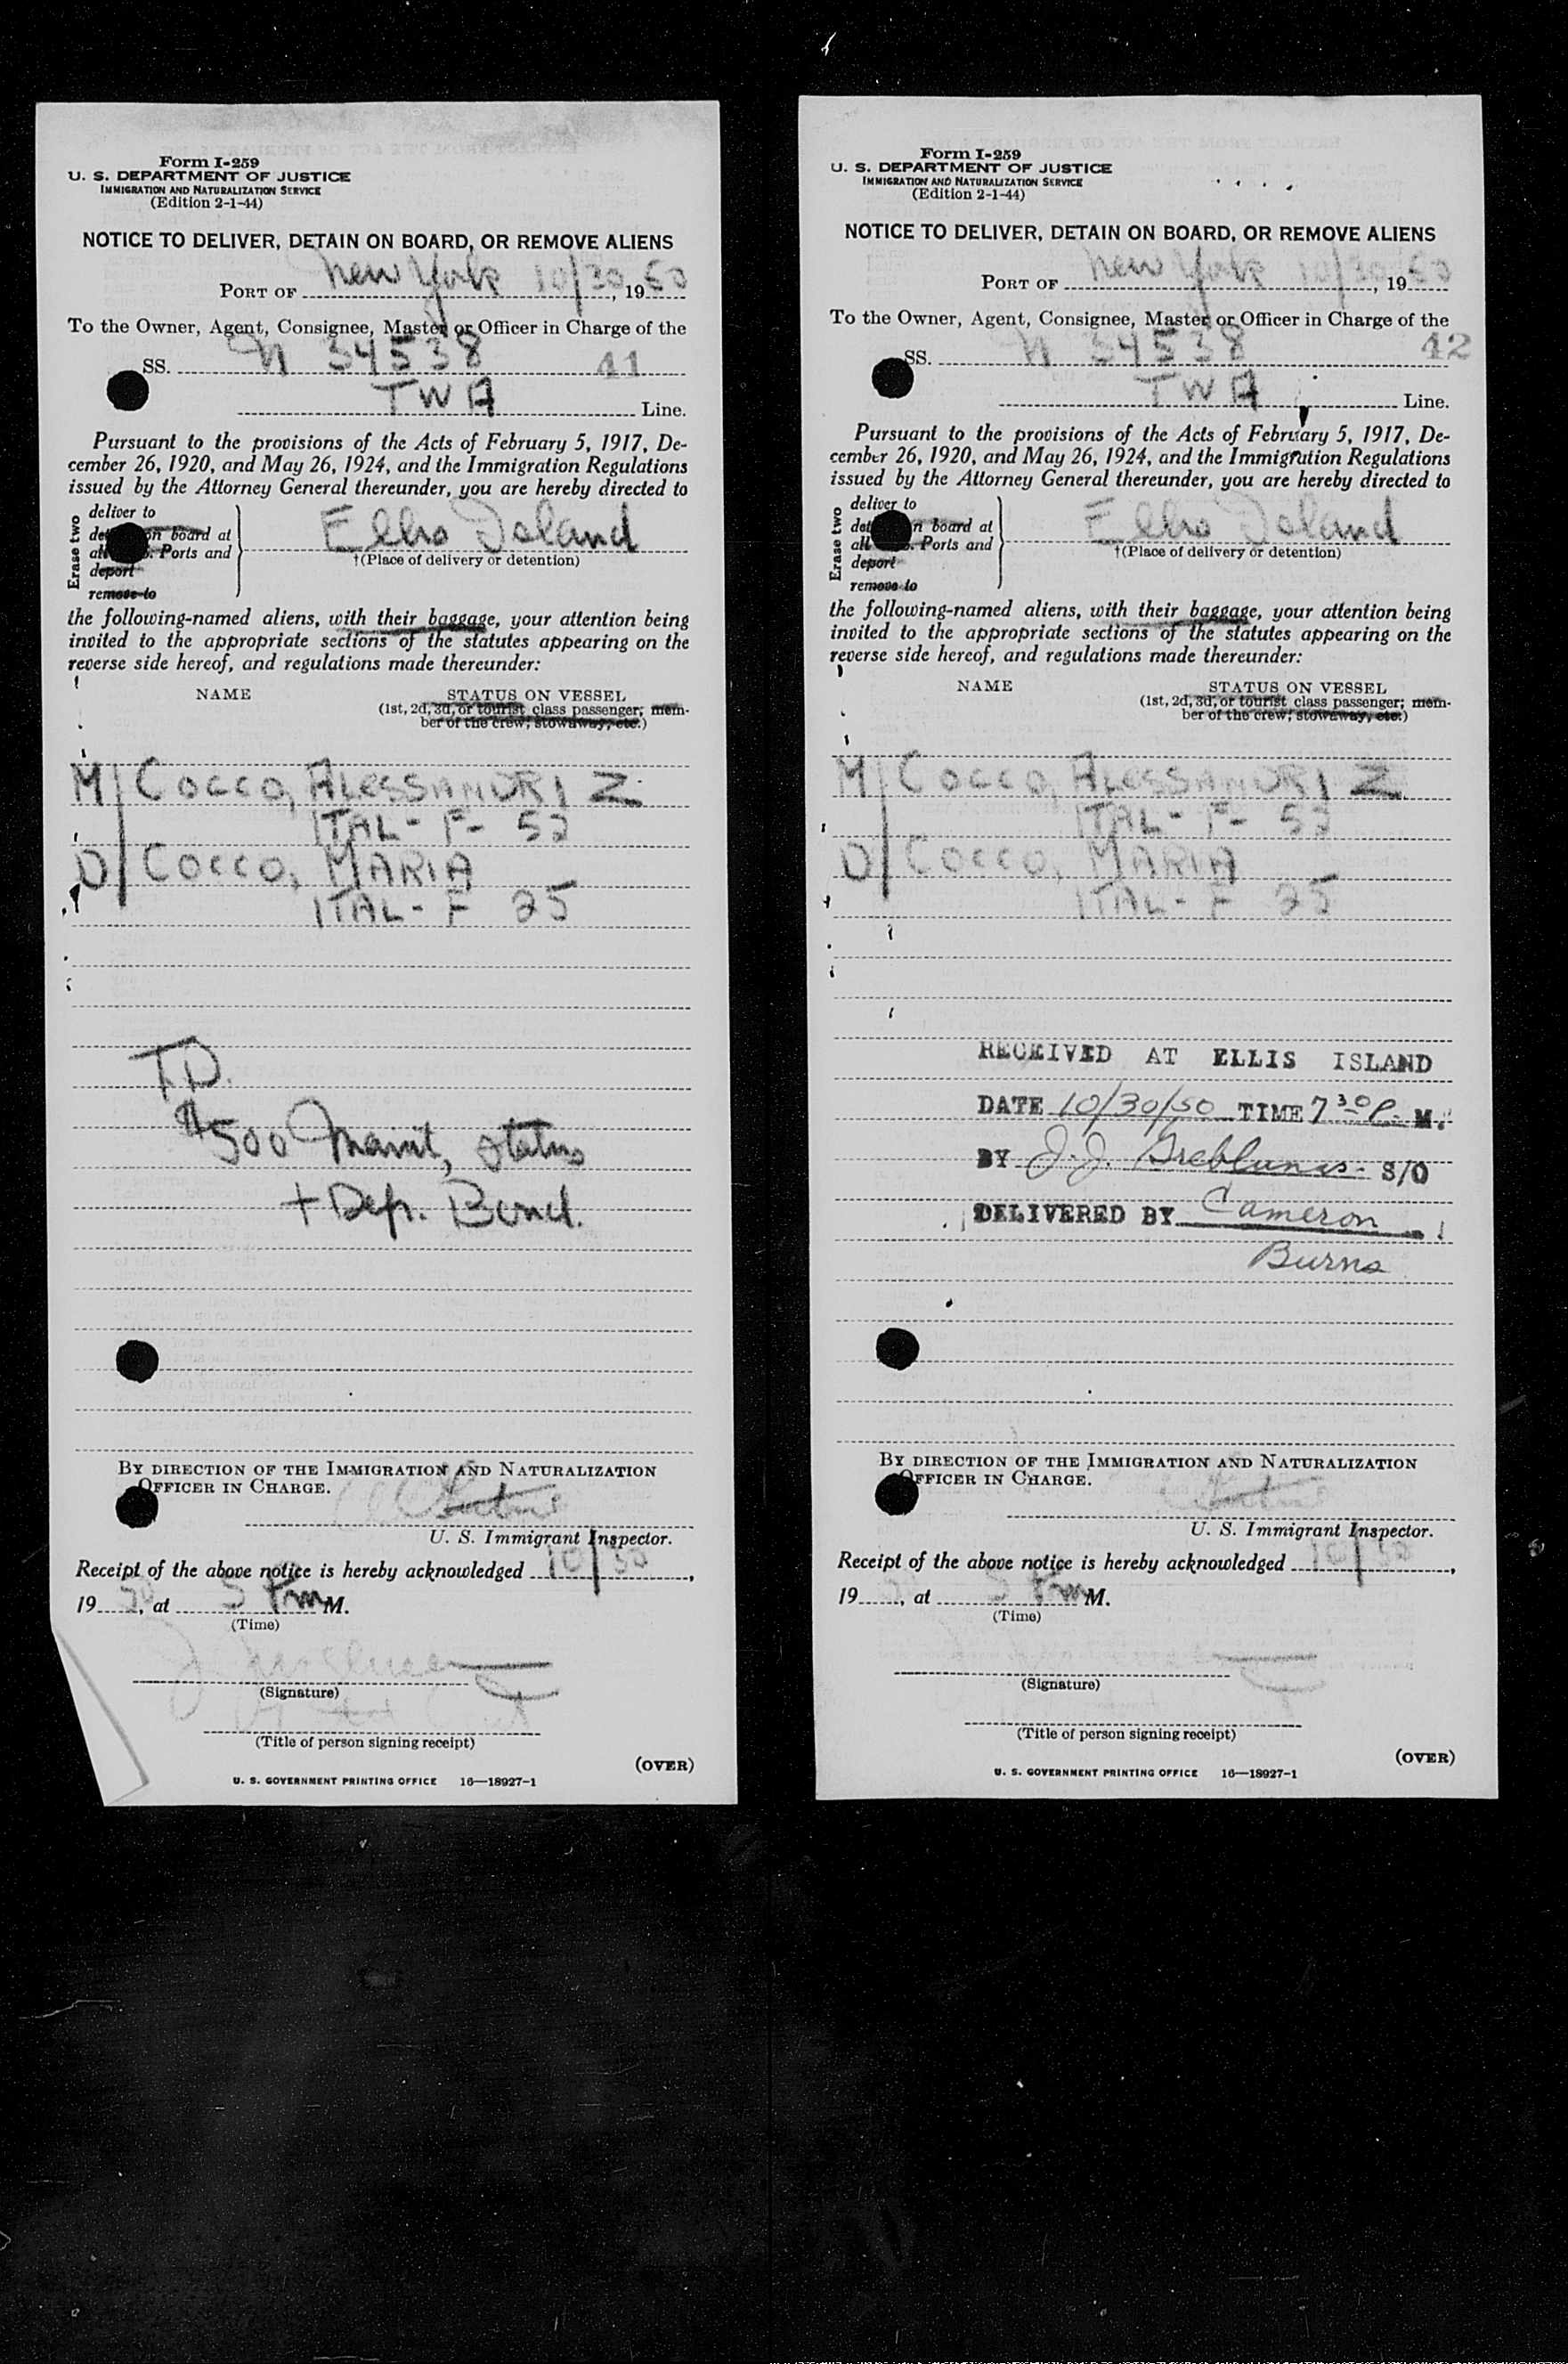 Form I-259
U. S. DEPARTMENT OF JUSTICE
IMMIGRATION AND NATURALIZATION SERVICE
(Edition 2-1-44)
NOTICE TO DELIVER, DETAIN ON BOARD, OR REMOVE ALIENS
PORT OF New York 10/30, 1950
To the Owner, Agent, Consignee, Master or Officer in Charge of the
SS. N 34538 41
TWA Line.
Pursuant to the provisions of the Acts of February 5, 1917, De-
cember 26, 1920, and May 26, 1924, and the Immigration Regulations
issued by the Attorney General thereunder, you are hereby directed to
Erase two
deliver to
on board at
Ports and
deport
remove to
Ellis Island
†(Place of delivery or detention)
the following-named aliens, with their baggage, your attention being
invited to the appropriate sections of the statutes appearing on the
reverse side hereof, and regulations made thereunder:
NAME STATUS ON VESSEL
(1st, 2d, 3d, or tourist class passenger; mem-
ber of the crew; stowaway, etc.)
M COCCO, ALESSANDRI Z
ITAL - F - 52
D COCCO, MARIA
ITAL - F 25
T.D.
$500 Maint, status
+ Dep. Bond.
BY DIRECTION OF THE IMMIGRATION AND NATURALIZATION
OFFICER IN CHARGE.
U. S. Immigrant Inspector.
Receipt of the above notice is hereby acknowledged 10/30,
1950, at 5 Pm M.
(Time)
(Signature)
(Title of person signing receipt)
(OVER)
U. S. GOVERNMENT PRINTING OFFICE 16—18927-1
Form I-259
U. S. DEPARTMENT OF JUSTICE
IMMIGRATION AND NATURALIZATION SERVICE
(Edition 2-1-44)
NOTICE TO DELIVER, DETAIN ON BOARD, OR REMOVE ALIENS
PORT OF New York 10/30, 1950
To the Owner, Agent, Consignee, Master or Officer in Charge of the
SS. N 34538 42
TWA Line.
Pursuant to the provisions of the Acts of February 5, 1917, De-
cember 26, 1920, and May 26, 1924, and the Immigration Regulations
issued by the Attorney General thereunder, you are hereby directed to
Erase two
deliver to
on board at
all Ports and
deport
remove to
Ellis Island
†(Place of delivery or detention)
the following-named aliens, with their baggage, your attention being
invited to the appropriate sections of the statutes appearing on the
reverse side hereof, and regulations made thereunder:
NAME STATUS ON VESSEL
(1st, 2d, 3d, or tourist class passenger; mem-
ber of the crew; stowaway, etc.)
M COCCO, ALESSANDRI Z
ITAL - F - 52
D COCCO, MARIA
ITAL - F 25
RECEIVED AT ELLIS ISLAND
DATE 10/30/50 TIME 7 30 P. M.
BY J. J. Greblunas S/O
DELIVERED BY Cameron
Burns
BY DIRECTION OF THE IMMIGRATION AND NATURALIZATION
OFFICER IN CHARGE.
U. S. Immigrant Inspector.
Receipt of the above notice is hereby acknowledged 10/30,
19, at 5 Pm M.
(Time)
(Signature)
(Title of person signing receipt)
(OVER)
U. S. GOVERNMENT PRINTING OFFICE 16—18927-1